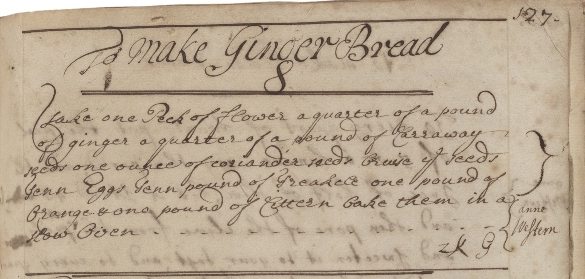 127.
To make Ginger Bread
8
Take one Peck of flower a quarter of a pound
of ginger a quarter of a pound of Carraway
seeds one ounce of coriander seeds bruise ye seeds
Tenn Eggs Tenn pound of Treakele one pound of
Orange & one pound of Cittern bake them in a
slow Oven
anne
Western